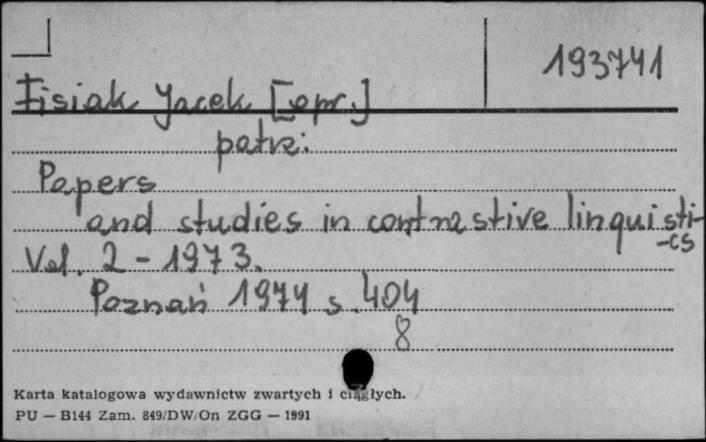 193741
Fisiak Jacek [opr.]
patrz:
Papers
and studies in contrastive linguisti-
-cs
Vol. 2 - 1973.
Poznań 1974 s. 404
8
Karta katalogowa wydawnictw zwartych i ciągłych.
PU — B144 Zam. 849/DW/On ZGG — 1991